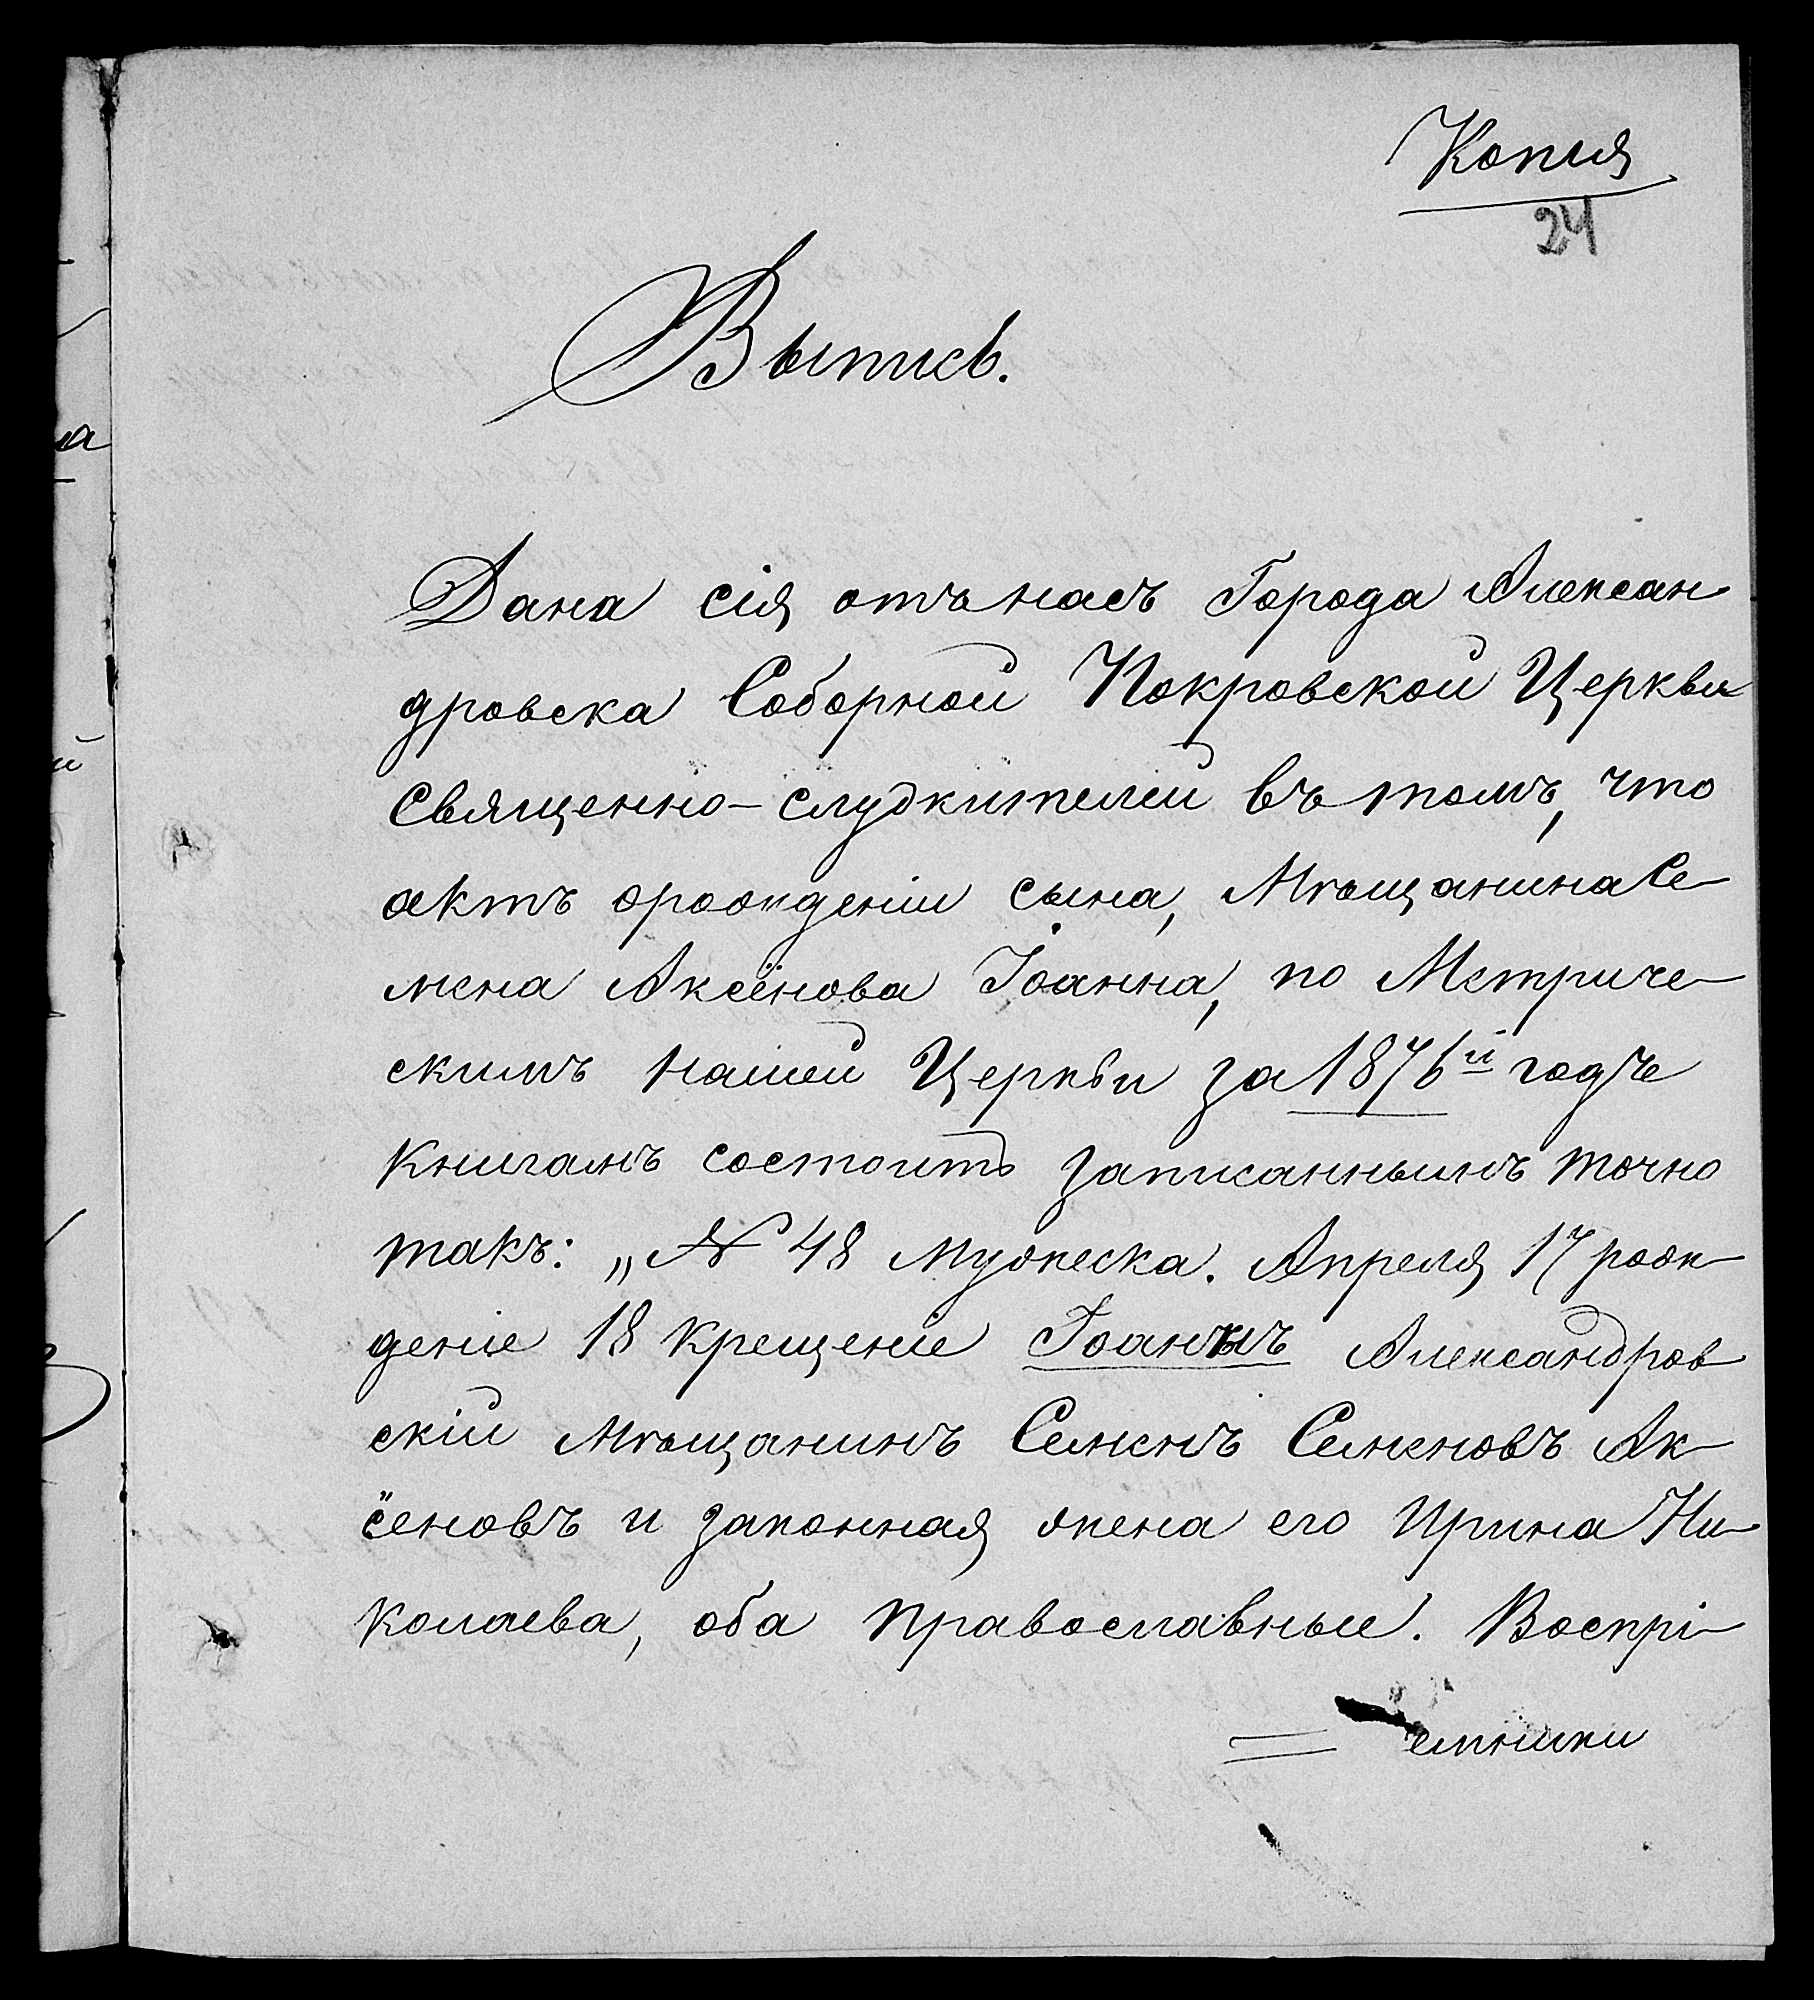 Копия
24
Выпись.
Дана сія отъ насъ Города Алексан
дровска Соборной Покровской Церкви
Священно-служителей въ томъ, что
актъ о рожденіи сына, Мѣщанина Се-
мена Аксёнова Іоанна, по Метриче-
скимъ нашей Церкви за 1876й годъ
книгамъ состоитъ записаннымъ точно
такъ: „№ 48 мужеска. Апреля 17 рож-
деніе 18 крещеніе Іоаннъ Александров
скій Мѣщанинъ Семенъ Семеновъ Ак-
сёновъ и законная жена его Ирина Ни-
колаева, оба православные. Воспрі-
емники
а
й